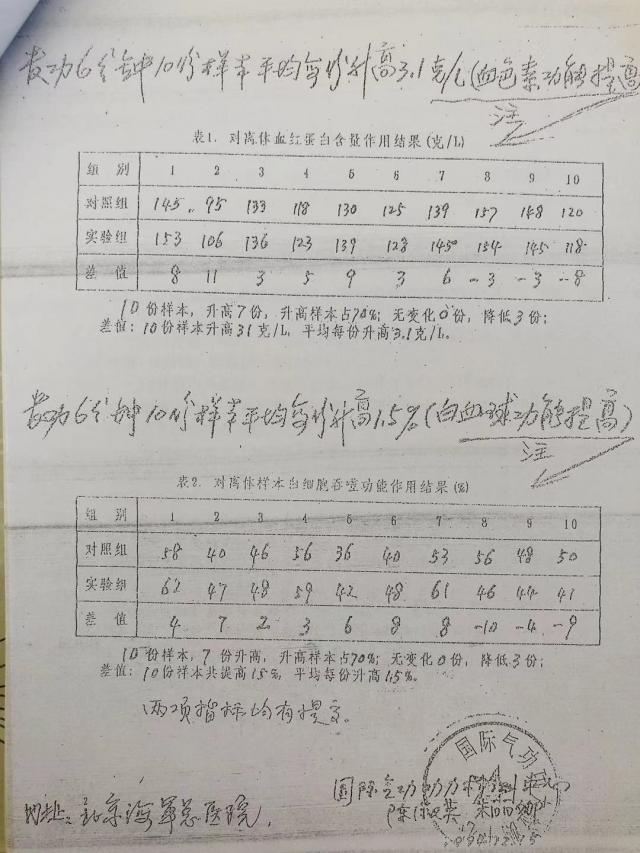 发功6分钟10份样本平均每份升高3.1克/L(血色素功能提高
注
表1. 对离体血红蛋白含量作用结果(克/L)
组 别 1 2 3 4 5 6 7 8 9 10
对照组 145 95 133 118 130 125 139 157 148 120
实验组 153 106 136 123 139 128 145 154 145 118
差 值 8 11 3 5 9 3 6 -3 -3 -8
10份样本, 升高7份, 升高样本占70%; 无变化0份, 降低3份;
差值: 10份样本升高31克/L, 平均每份升高3.1克/L。
发功6分钟10份样本平均每份升高1.5%(白血球功能提高)
注
表2. 对离体样本白细胞吞噬功能作用结果(%)
组 别 1 2 3 4 5 6 7 8 9 10
对照组 58 40 46 56 36 40 53 56 48 50
实验组 62 47 48 59 42 48 61 46 44 41
差 值 4 7 2 3 6 8 8 -10 -4 -9
10份样本, 7份升高, 升高样本占70%; 无变化0份, 降低3份;
差值: 10份样本共提高15%, 平均每份升高1.5%。
两项指标均有提高。
国际气功
国际气功
地址: 北京海军总医院.